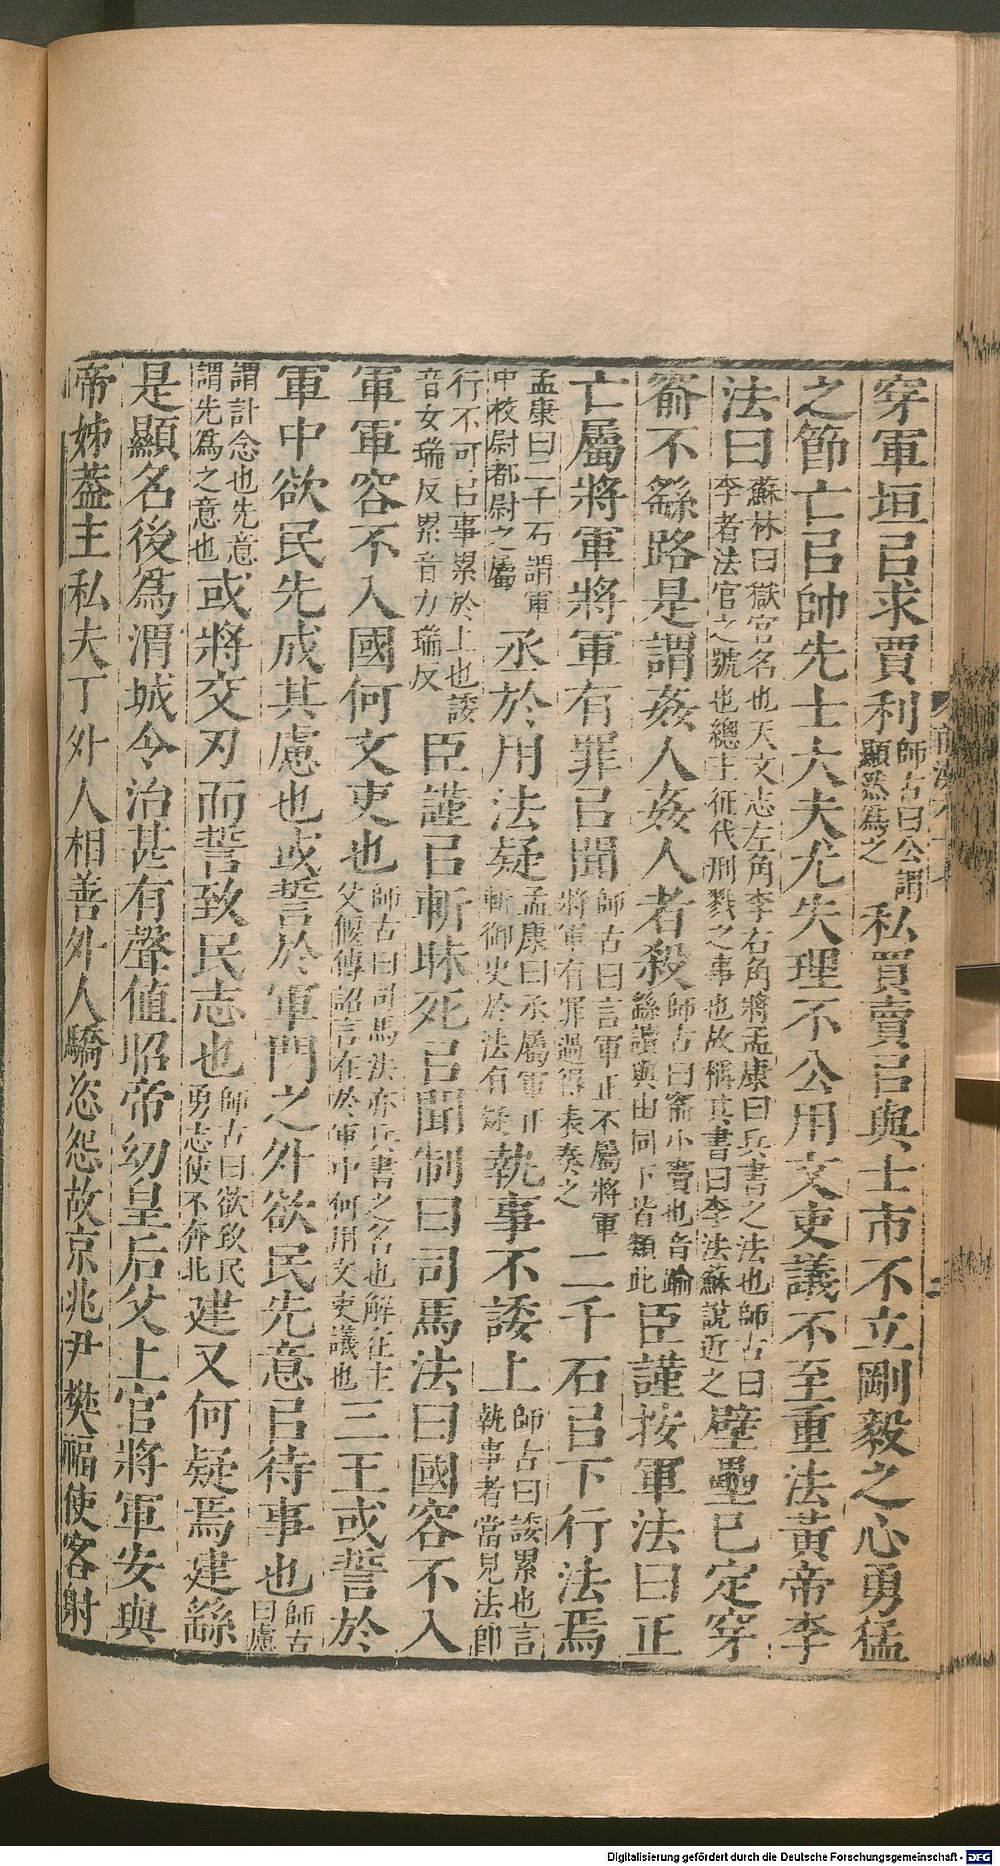 穿軍垣㠯求賈利師古曰公謂顯然為之私買賣㠯與士市不立剛毅之心勇猛
之節亡㠯帥先士大夫尤失理不公用文吏議不至重法黃帝李
法曰蘇林曰獄官名也天文志左角李右角將孟康曰兵書之法也師古曰李者法官之號也總主征伐刑戮之事也故稱其書曰李法蘇說近之壁壘已定穿
窬不繇路是謂姦人姦人者殺師古曰窬小竇也音踰繇讀與由同下皆類此臣謹按軍法曰正
亡屬將軍將軍有罪㠯聞師古曰言軍正不屬將軍將軍有罪過得表奏之二千石㠯下行法焉
孟康曰二千石謂軍中校尉都尉之屬丞於用法疑孟康曰丞屬軍正斬御史於法有疑執事不諉上師古曰諉累也言執事者當見法即
行不可㠯事累於上也諉音女瑞反累音力瑞反臣謹㠯斬昧死㠯聞制曰司馬法曰國容不入
軍軍容不入國何文吏也師古曰司馬法亦兵書之名也解在主父偃傳詔言在於軍中何用文吏議也三王或誓於
軍中欲民先成其慮也或誓於軍門之外欲民先意㠯待事也師古曰慮
謂計念也先意謂先為之意也或將交刃而誓致民志也師古曰欲致民勇志使不奔北建又何疑焉建繇
是顯名後為渭城令治甚有聲值昭帝幼皇后父上官將軍安與
帝姊蓋主私夫丁外人相善外人驕恣怨故京兆尹樊福使客射
Digitalisierung gefördert durch die Deutsche Forschungsgemeinschaft - DFG